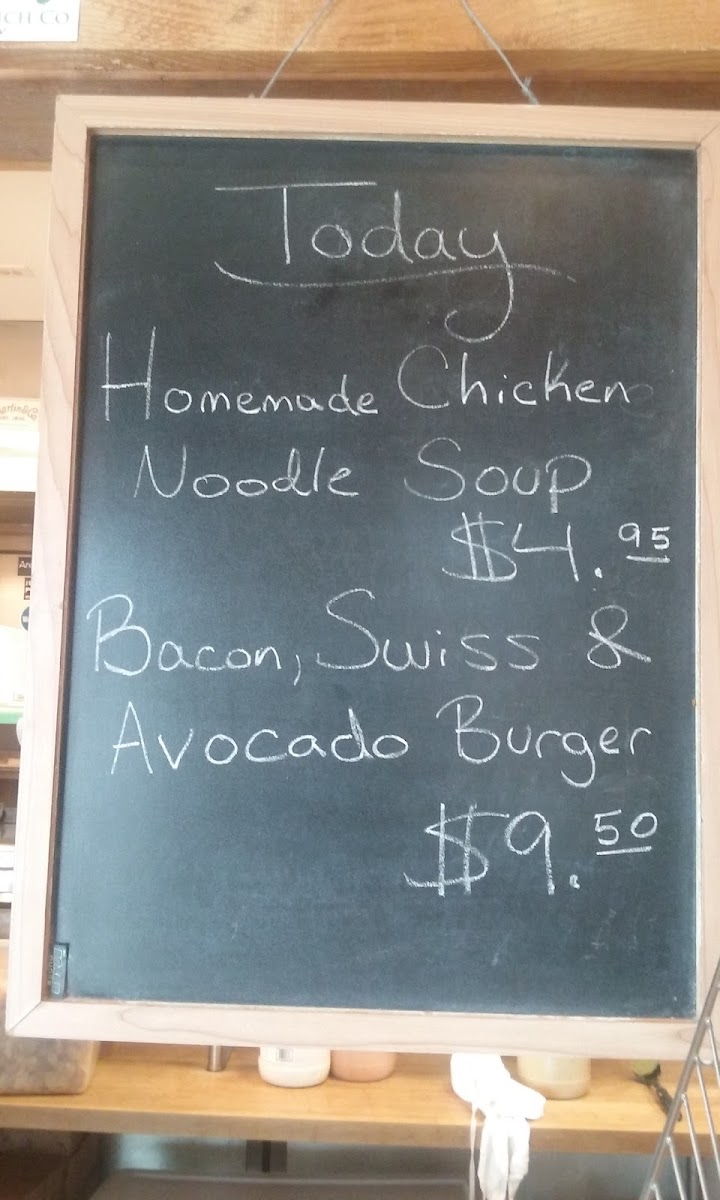 CH CO
Today
Homemade Chicken
Noodle Soup
$4.95
Bacon, Swiss &
Avocado Burger
$9.50